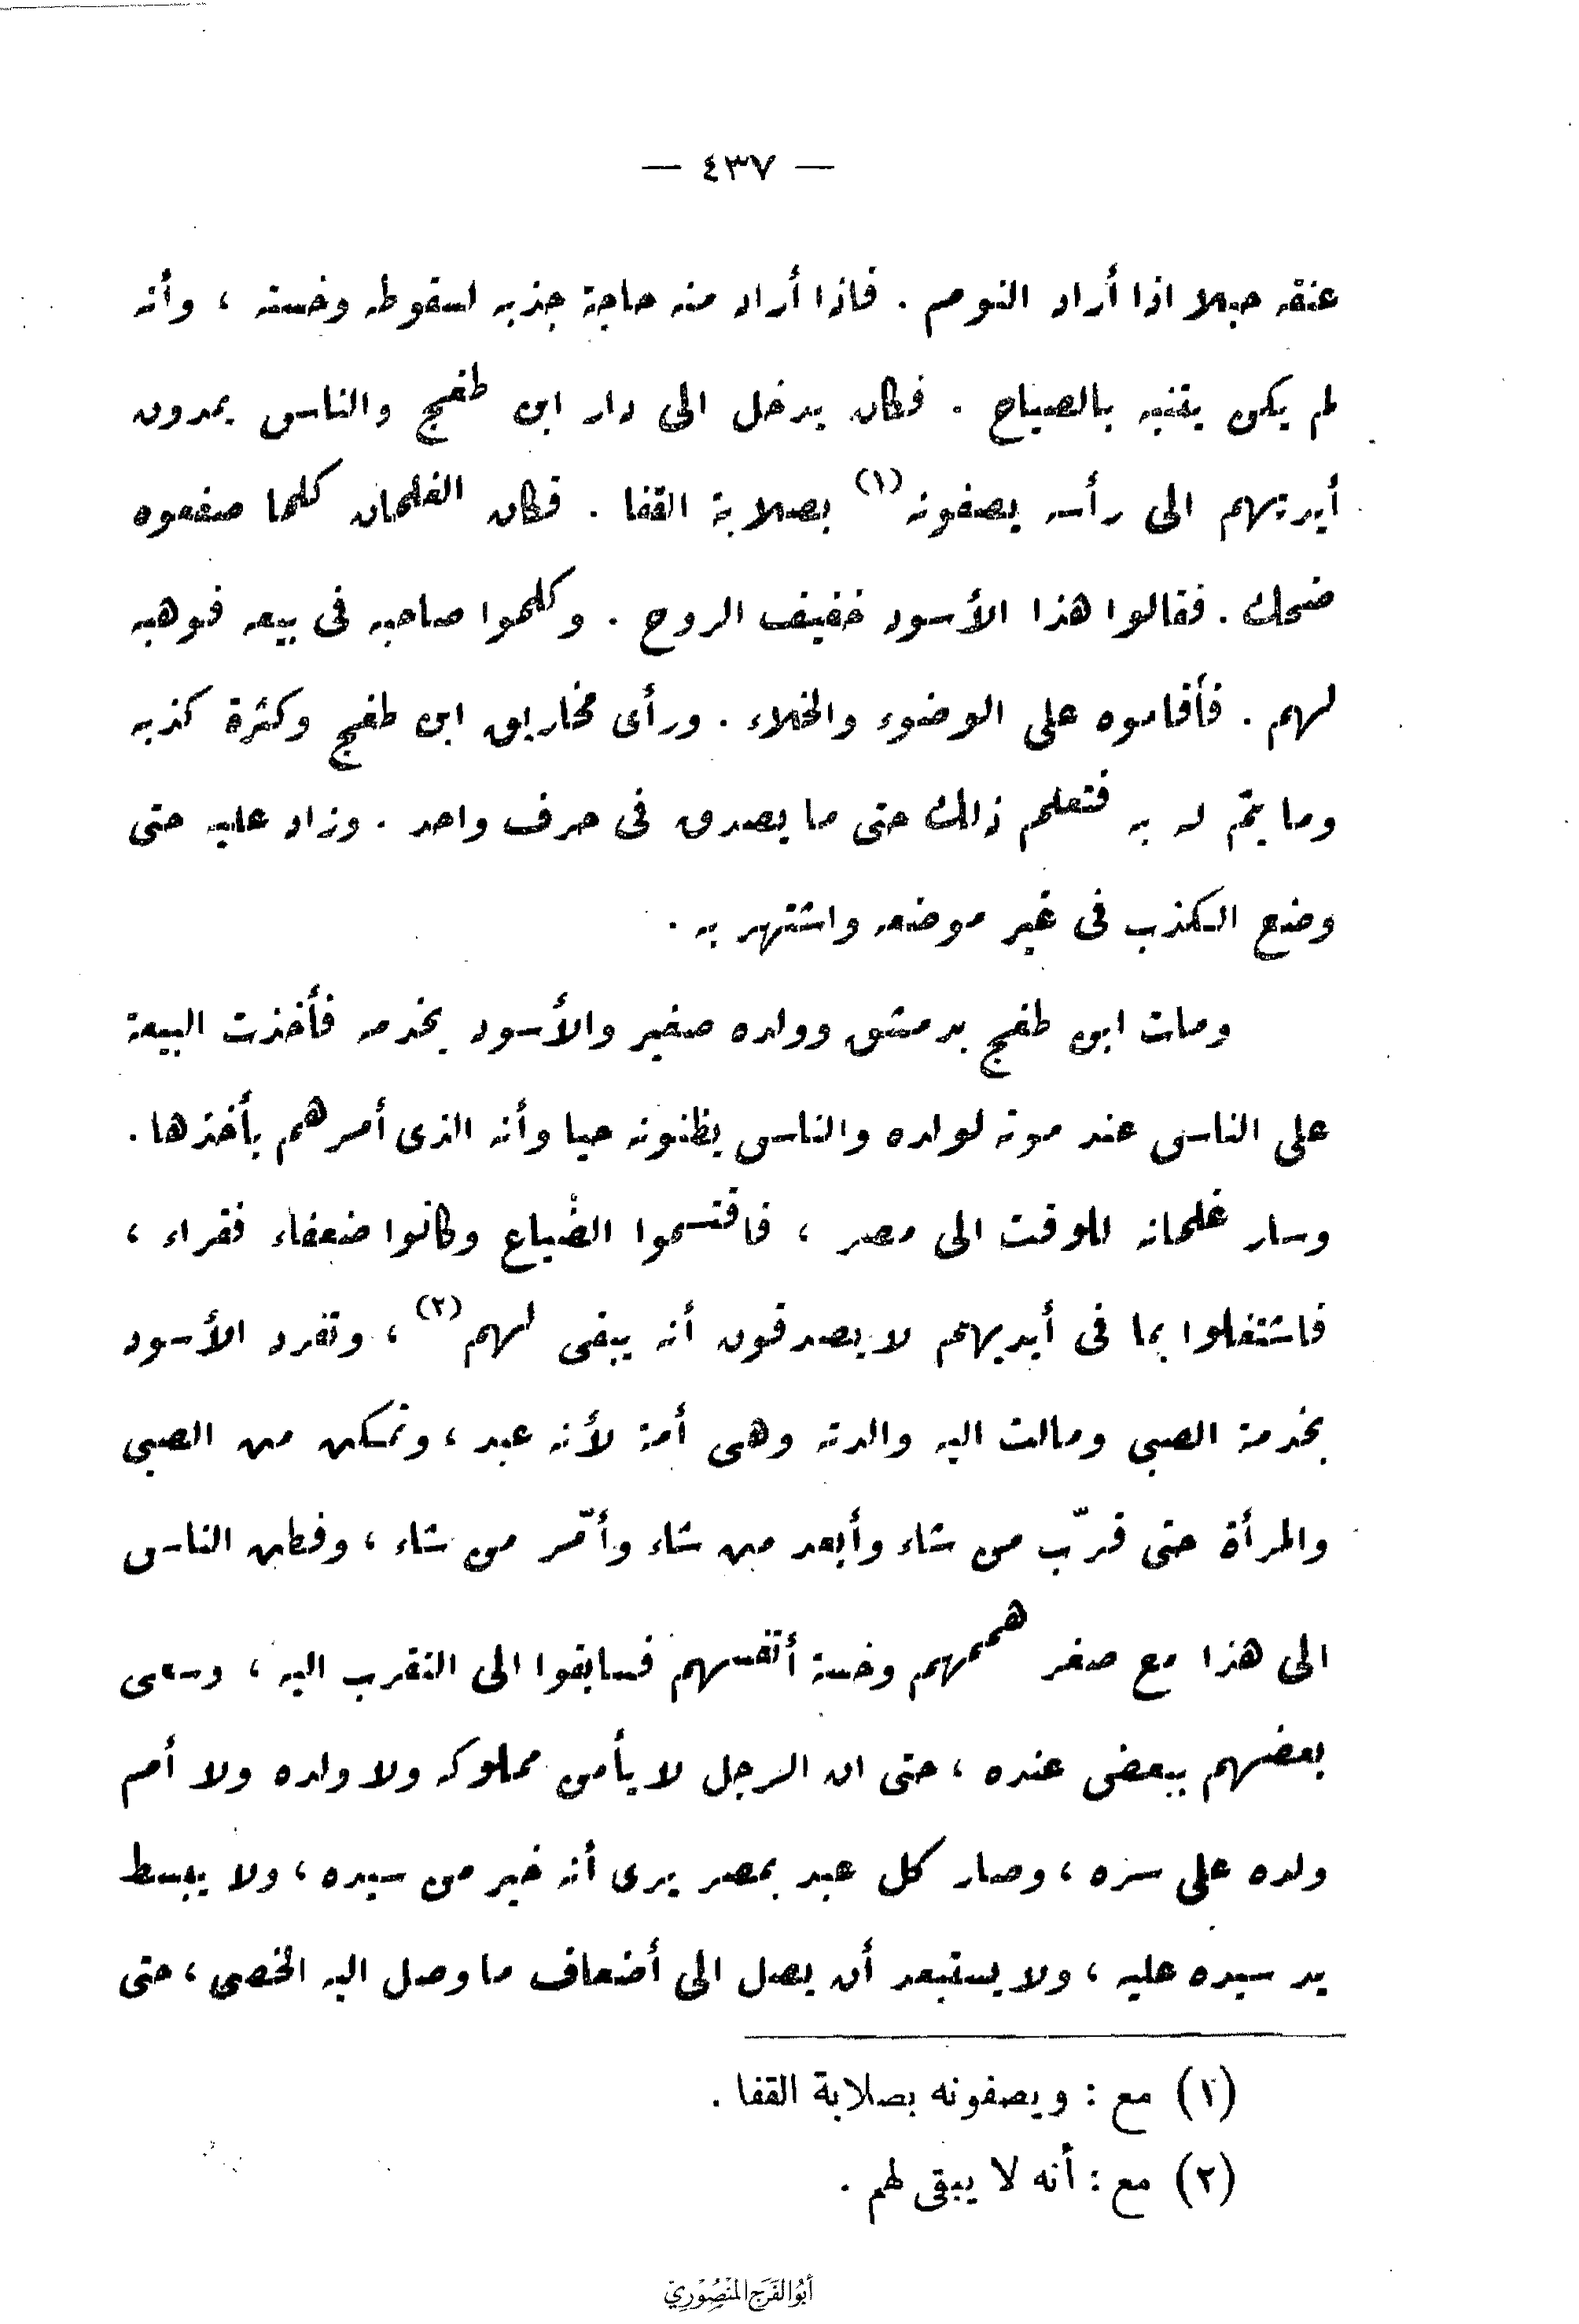 — ٤٣٧ —
عنقه حبلا اذا أراد النوم . فاذا أراد منه حاجة جذبه لسقوطه وخسته ، وأنه
لم يكن ينتبه بالصياح . فكان يدخل الى دار ابن طغج والناس يمدون
أيديهم الى رأسه يصفونه (١) بصلابة القفا . فكان الغلمان كلما صفعوه
ضحك . فقالوا هذا الأسود خفيف الروح . وكلموا صاحبه فى بيعه فوهبه
لهم . فأقاموه على الوضوء والخلاء . ورأى مخاريق ابن طغج وكثرة كذبه
وما يتمّ له به فتعلم ذلك حتى ما يصدق فى حرف واحد . وزاد عليه حتى
وضع الكذب فى غير موضعه واشتهر به .
ومات ابن طغج بدمشق وولده صغير والأسود يخدمه فأخذت البيعة
على الناس عند موته لولده والناس يظنونه حيا وأنه الذى أمرهم بأخذها .
وسار غلمانه للوقت الى مصر ، فاقتسموا الضياع وكانوا ضعفاء فقراء ،
فاشتغلوا بما فى أيديهم لا يصدقون أنه يبقى لهم (٢) ، وتفرد الأسود
بخدمة الصبى ومالت اليه والدته وهى أمة لأنه عبد ، وتمكن من الصبى
والمرأة حتى قرّب من شاء وأبعد من شاء وأمّر من شاء ، وفطن الناس
الى هذا مع صغر هممهم وخسة أنفسهم فسابقوا الى التقرب اليه ، وسعى
بعضهم ببعض عنده ، حتى ان الرجل لا يأمن مملوكه ولا ولده ولا أم
ولده على سره ، وصار كل عبد بمصر يرى أنه خير من سيده ، ولا يبسط
يد سيده عليه ، ولا يستبعد أن يصل الى أضعاف ما وصل اليه الخصى ، حتى
(١) مع : ويصفونه بصلابة القفا .
(٢) مع : أنه لا يبقى لهم .
أَبُو الفَرَج المَنْصُوْرِي